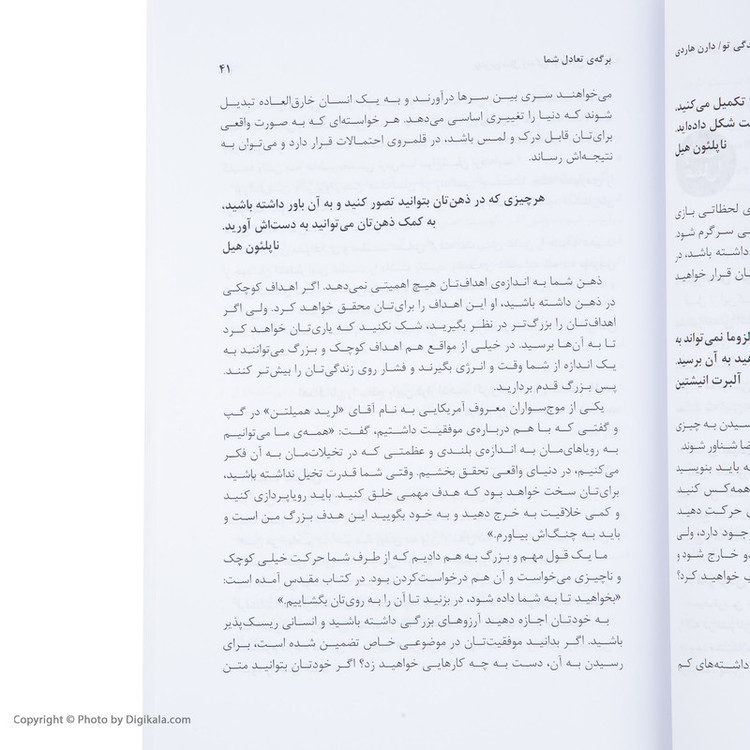 برگه‌ی تعادل شما
۴۱
می‌خواهند سری بین سرها درآورند و به یک انسان خارق‌العاده تبدیل
شوند که دنیا را تغییری اساسی می‌دهد. هر خواسته‌ای که به صورت واقعی
برای‌تان قابل درک و لمس باشد، در قلمروی احتمالات قرار دارد و می‌توان به
نتیجه‌اش رساند.
هرچیزی که در ذهن‌تان بتوانید تصور کنید و به آن باور داشته باشید،
به کمک ذهن‌تان می‌توانید به دست‌اش آورید.
ناپلئون هیل
ذهن شما به اندازه‌ی اهداف‌تان هیچ اهمیتی نمی‌دهد. اگر اهداف کوچکی
در ذهن داشته باشید، او این اهداف را برای‌تان محقق خواهد کرد. ولی اگر
اهداف‌تان را بزرگ‌تر در نظر بگیرید، شک نکنید که یاری‌تان خواهد کرد
تا به آن‌ها برسید. در خیلی از مواقع هم اهداف کوچک و بزرگ می‌توانند به
یک اندازه از شما وقت و انرژی بگیرند و فشار روی زندگی‌تان را بیش‌تر کنند.
پس بزرگ قدم بردارید.
یکی از موج‌سواران معروف آمریکایی به نام آقای «لرید همیلتن» در گپ
و گفتی که با هم درباره‌ی موفقیت داشتیم، گفت: «همه‌ی ما می‌توانیم
به رویاهای‌مان به اندازه‌ی بلندی و عظمتی که در تخیلات‌مان به آن فکر
می‌کنیم، در دنیای واقعی تحقق بخشیم. وقتی شما قدرت تخیل نداشته باشید،
برای‌تان سخت خواهد بود که هدف مهمی خلق کنید. باید رویاپردازی کنید
و کمی خلاقیت به خرج دهید و به خود بگویید این هدف بزرگ من است و
باید به چنگ‌اش بیاورم.»
ما یک قول مهم و بزرگ به هم دادیم که از طرف شما حرکت خیلی کوچک
و ناچیزی می‌خواست و آن هم درخواست‌کردن بود. در کتاب مقدس آمده است:
«بخواهید تا به شما داده شود، در بزنید تا آن را به روی‌تان بگشاییم.»
به خودتان اجازه دهید آرزوهای بزرگی داشته باشید و انسانی ریسک‌پذیر
باشید. اگر بدانید موفقیت‌تان در موضوعی خاص تضمین شده است، برای
رسیدن به آن، دست به چه کارهایی خواهید زد؟ اگر خودتان بتوانید متن
تو/ دارن هاردی
تکمیل می‌کنید،
شکل داده‌اید.
ناپلئون هیل
لحظاتی بازی
سرگرم شود.
داشته باشد، در
قرار خواهید
لزوما نمی‌تواند به
به آن برسید.
آلبرت انیشتین
رسیدن به چیزی
شناور شوند.
باید بنویسید
همه‌کس کنید
حرکت دهید
دارد، ولی
خارج شود و
خواهید کرد؟
داشته‌های کم
Copyright © Photo by Digikala.com